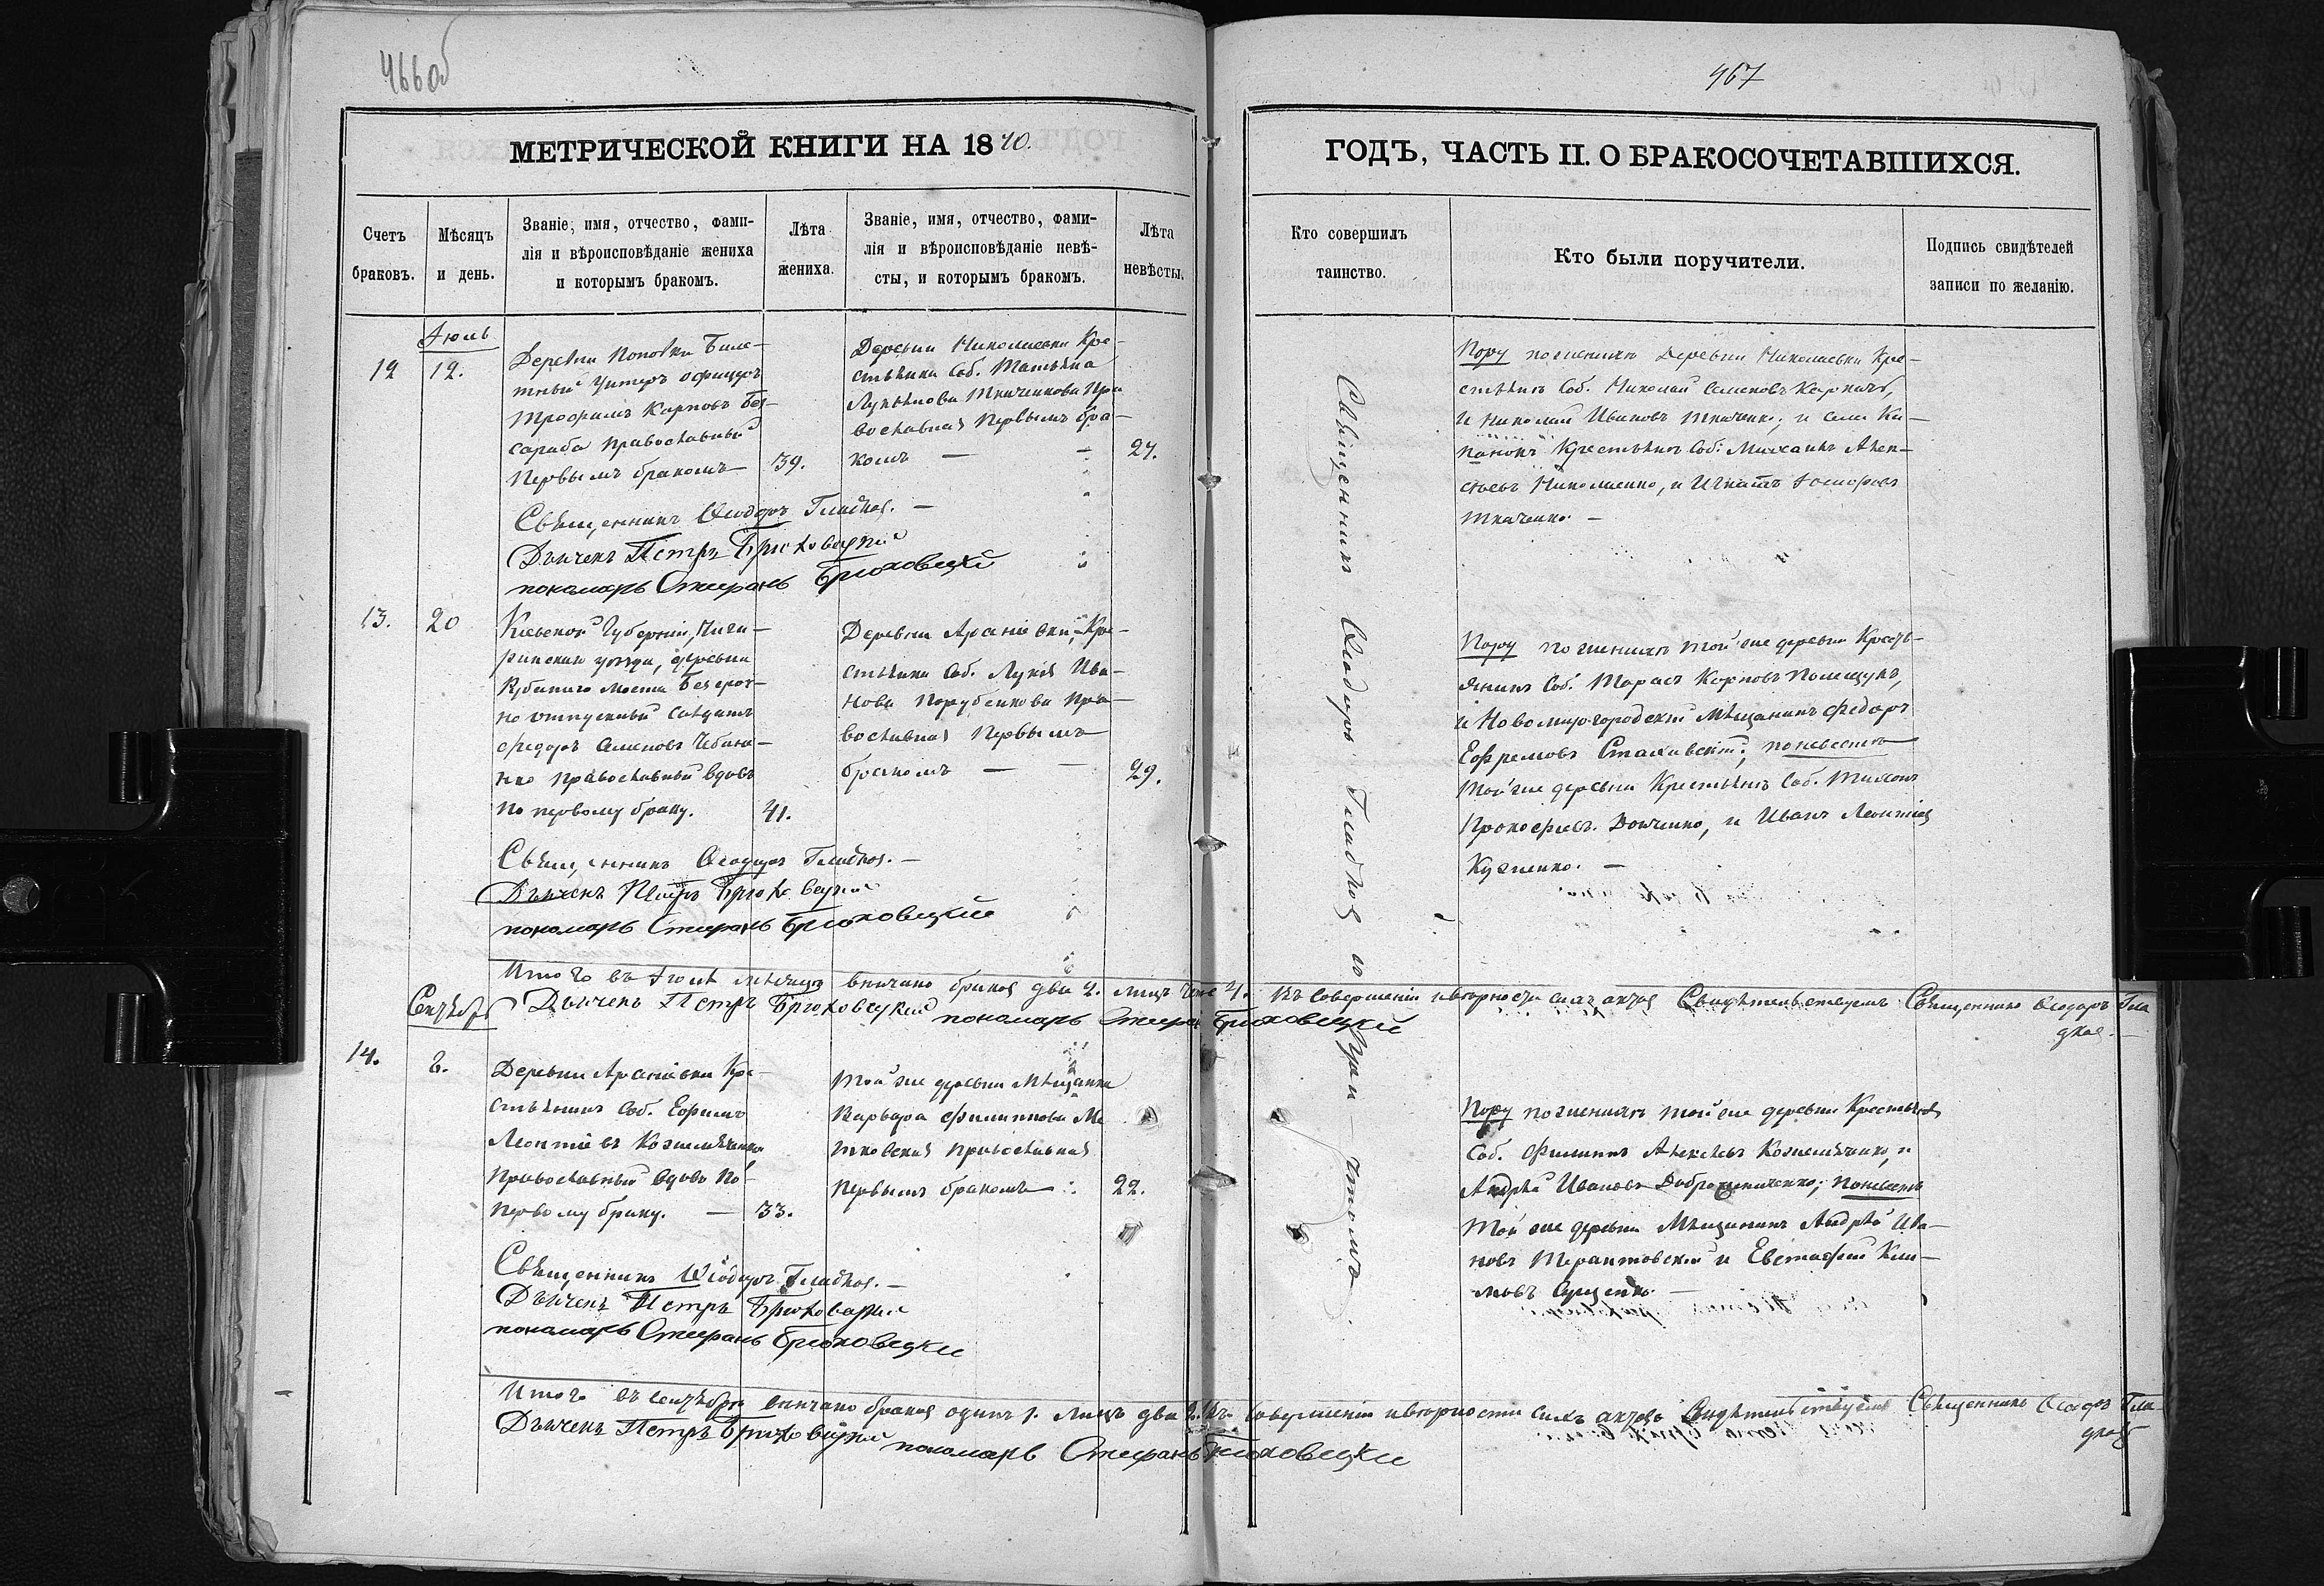 466об
МЕТРИЧЕСКОЙ КНИГИ НА 1870.
Счетъ браковъ.
Мѣсяцъ и день.
Званіе, имя, отчество, фами-
лія и вѣроисповѣданіе жениха
и которымъ бракомъ.
Лѣта жениха.
Званіе, имя, отчество, фами-
лія и вѣроисповѣданіе невѣ-
сты, и которымъ бракомъ.
Лѣта невѣсты.
Іюль
12
12.
Деревни Поповки Биле-
тный Унтеръ офицеръ
Трофимъ Карповъ Бес-
сараба православный
Первымъ бракомъ
39.
Деревни Николаевки Кре-
стьянка Соб. Татьяна
Лукьянова Ткаченкова Пра
вославная Первымъ бра-
комъ
27.
Священникъ Ѳеодоръ Гладкая.
Дьячекъ Петръ Брюховецкий
пономарь Стефанъ Брюховецкий
13.
20
Киевской Губерніи, Чиги-
ринскаго уѣзда, деревни
моста Безсроч-
но отпускный Солдатъ
Федоръ Семеновъ
православный вдовъ
по первому браку.
41.
Деревни Арсеніевки, Кре-
стьянка Соб. Лукія Ива-
нова Порубенкова Пра-
вославная Первымъ
бракомъ
29.
Священникъ Ѳеодоръ Гладкая.
Дьячекъ Петръ Брюховецкий
пономарь Стефанъ Брюховецкие
Итого въ Іюлѣ мѣсяцѣ вѣнчано браковъ два 2. лицъ четы 4.
Дьячекъ Петръ Брюховецкий пономарь Стефанъ Брюховецкий
Сентябрь
14.
2.
Деревни Арсеніевки Кре-
стьянинъ Соб. Ефимъ
Леонтіевъ
Православный вдовъ По
первому браку.
33.
Той же деревни Мѣщанка
Варвара Филиппова
православная
Первымъ бракомъ
22.
Священникъ Ѳеодоръ Гладкая.
Дьячекъ Петръ Брюховецкий
пономарь Стефанъ Брюховецкие
Итого въ сентябрѣ вѣнчано браковъ одинъ 1. лицъ два 2.
Дьячекъ Петръ Брюховецкий пономарь Стефанъ Брюховецкие
467
ГОДЪ, ЧАСТЬ II. О БРАКОСОЧЕТАВШИХСЯ.
Кто совершилъ таинство.
Кто были поручители.
Подпись свидѣтелей записи по желанію.
Священникъ Ѳеодоръ Гладкая съ причтомъ
Пору по женихѣ Деревни Николаевки Кре-
стьянъ Соб. Николай Семеновъ
и Николай Ивановъ Ткаченко; и села Ка-
Крестьянъ Соб. Михаилъ Алек-
сѣевъ Николаенко, и Игнатъ
Ткаченко.
Пору по женихѣ той же деревни Кресть-
янинъ Соб. Тарасъ Карповъ Полещукъ,
и Новомиргородский Мѣщанинъ Федоръ
Ефремовъ Стаховский; по невестѣ
Той же деревни Крестьянъ Соб. Тихонъ
Прокофіевъ, и Иванъ Леонтіев
Кузменко.
Къ совершеніи и вѣрности сихъ актовъ Свидѣтельствуемъ Священникъ Ѳеодоръ Гла
дкая.
Пору по женихѣ той же деревни Крестьян
Соб. Филиппъ Алексѣевъ и
Андрѣй Ивановъ; по невестѣ
Той же деревни Мѣщанинъ Андрѣй Ива-
новъ и Евстафий Кли-
мовъ
Къ совершеніи и вѣрности сихъ актовъ Свидѣтельствуемъ Священникъ Ѳеодоръ Гла
дкая